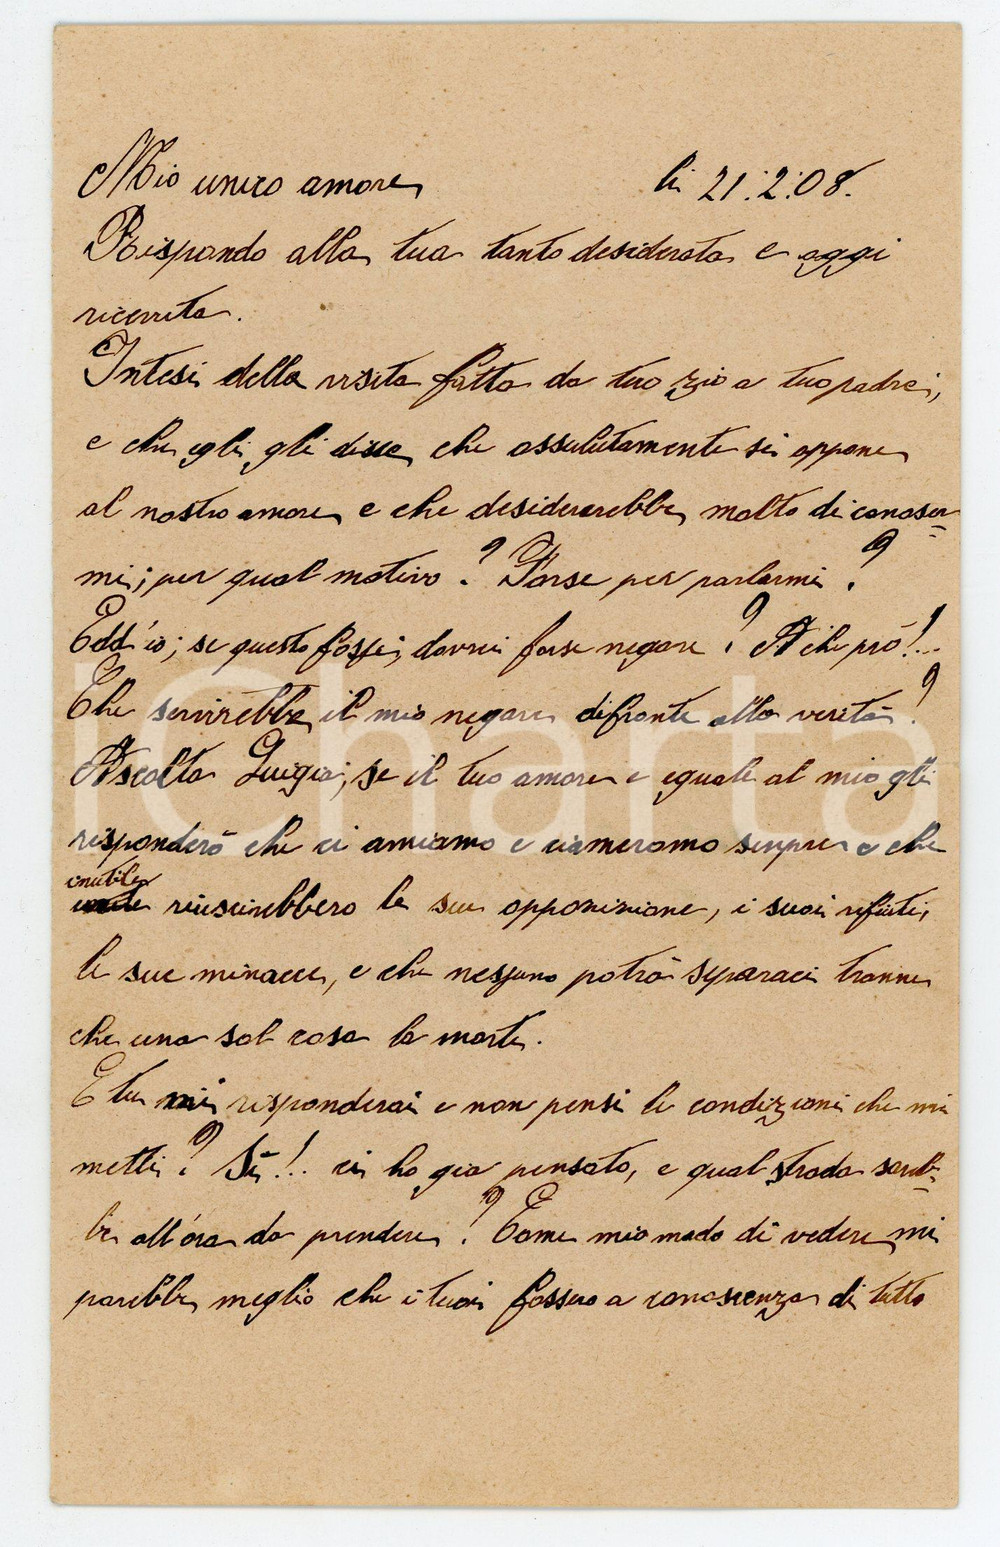 Mio unico amore, li 21.2.08.
Rispondo alla tua tanto desiderata e oggi
ricevuta.
Intesi della visita fatta da tuo zio a tuo padre,
e che egli gli disse che assulutamente si oppone
al nostro amore e che desidererebbe molto di conoscer=
mi; per qual motivo? Forse per parlarmi?
Edd'io; se questo fosse; dovrei forse negare? A che prò!...
Che servirebbe il mio negare difronte alla verità?
Ascolta Luigia; se il tuo amore e eguale al mio gli
risponderò che ci amiamo e ci ameramo sempre e che
inutile
riuscirebbero le sue opposizione, i suoi rifiuti,
le sue minacce, e che nessuno potrà separaci tranne
che una sol cosa la morte.
E tu mi risponderai e non pensi le condizioni che mi
metti? Sì!.. ci ho già pensato, e qual strada sareb=
be all'ora da prendere? Come mio modo di vedere mi
parebbe meglio che i tuoi fossero a conoscenza di tutto
iCharta